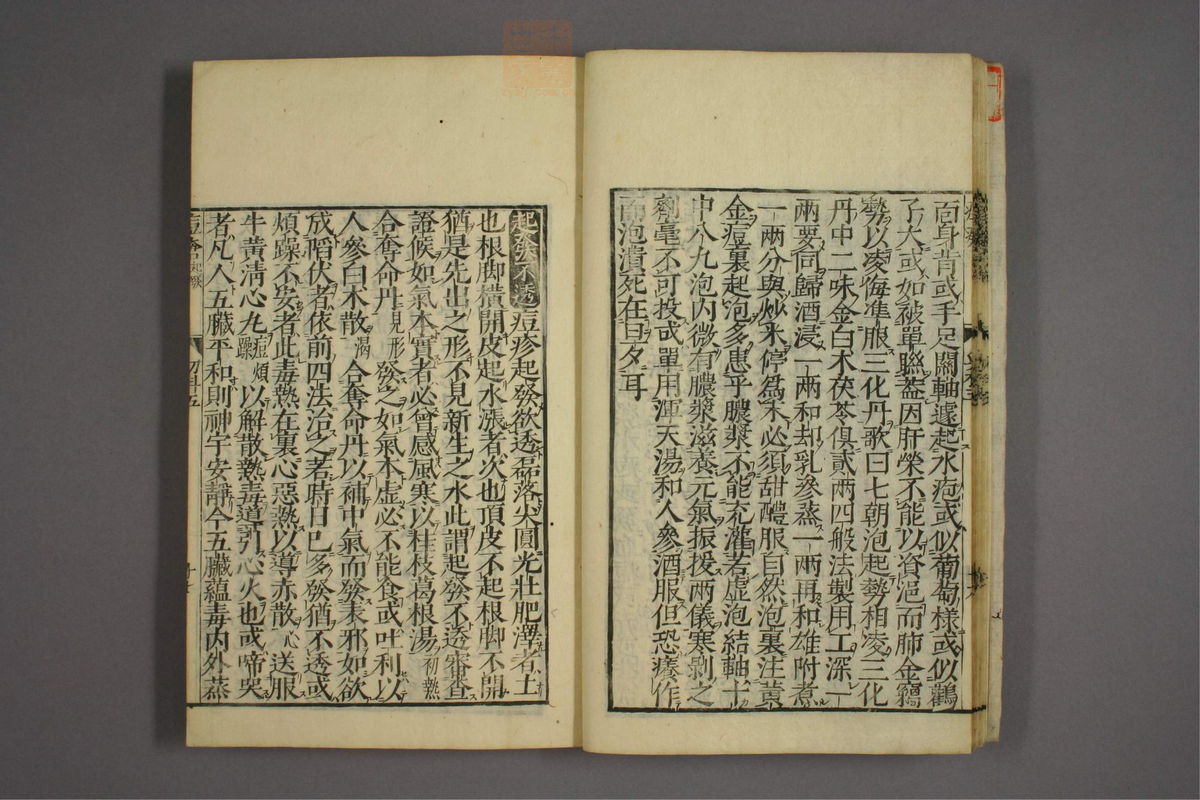 面身背或手足關軸遽起水疱或似葡萄樣或似鸛
子大或如被單聮蓋因肝榮不能以資浥而肺金竊
勢以凌侮準服三化丹歌曰七朝泡起勢相凌三化
丹中二味金白朮茯苓俱貳兩四般法製用工深一
兩要同歸酒浸一兩和却乳滲蒸一兩再和雄附煮
一兩分與炒米停爲末必須甜醴服自然泡裏注黃
金痘裏起泡多患乎膿漿不能充灌若虛泡結軸十
中八九泡內微有膿漿滋養元氣振援兩儀寒剝之
劑毫不可投或單用渾天湯和人參酒服但恐癢作
而泡潰死在旦夕耳
起發不透痘疹起發欲透磊落尖圓光壯肥澤者上
也根脚橫開皮起水漲者次也頂皮不起根脚不開
猶是先出之形不見新生之水此謂起發不透審查
證候如氣本實者必曾感風寒以桂枝葛根湯初熱
合奪命丹見形發之如氣本虛必不能食或吐利以
人參白朮散渴合奪命丹以補中氣而發表邪如欲
成㾮伏者依前四法治之若時日已多發猶不透或
煩躁不安者此毒熱在裏心惡熱以導赤散心送服
牛黃淸心丸痘煩躁以解散熱毒導引心火也或啼哭
者凡人五臟平和則神宇安靜今五臟蘊毒內外蒸